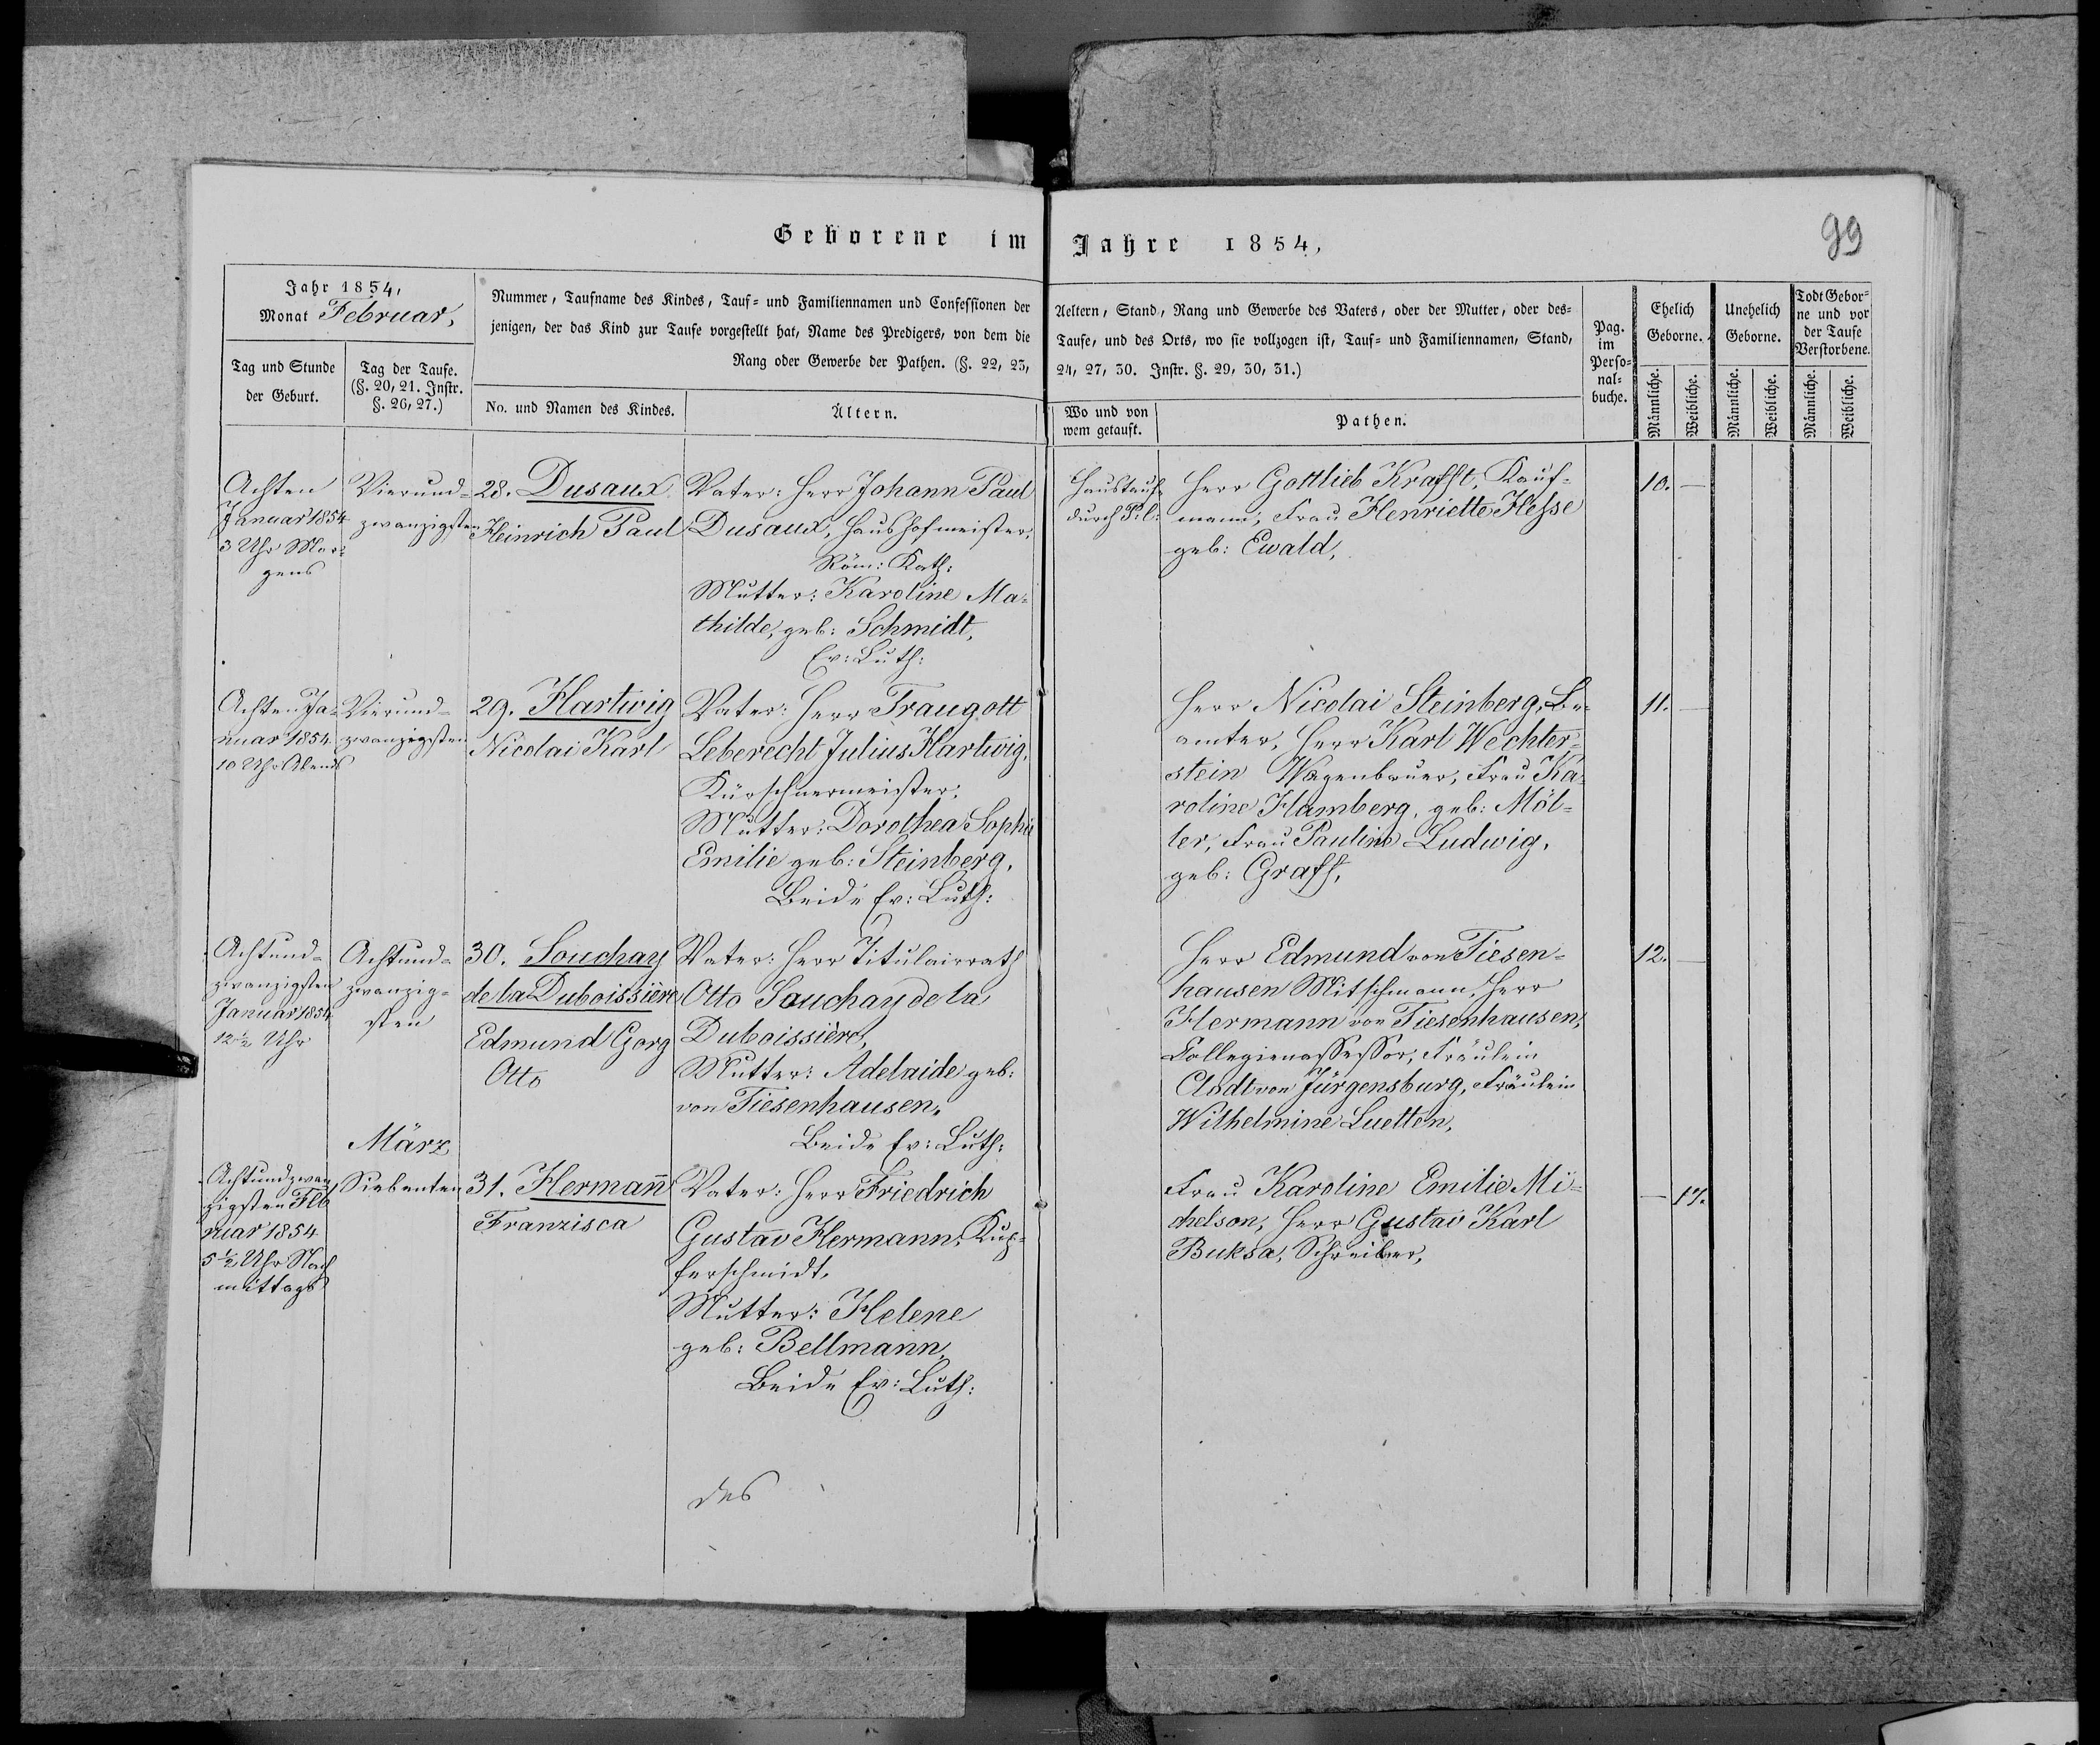 Geborene im Jahre 1854,
99
Jahr 1854,
Monat Februar,
Tag und Stunde
der Geburt.
Tag der Taufe.
(§. 20, 21. Instr.
§. 26, 27.)
Nummer, Taufname des Kindes, Tauf- und Familiennamen und Confessionen der
jenigen, der das Kind zur Taufe vorgestellt hat, Name des Predigers, von dem die
Rang oder Gewerbe der Pathen. (§. 22, 23,
No. und Namen des Kindes.
Ältern.
Aeltern, Stand, Rang und Gewerbe des Vaters, oder der Mutter, oder des-
Taufe, und des Orts, wo sie vollzogen ist, Tauf- und Familiennamen, Stand,
24, 27, 30. Instr. §. 29, 30, 31.)
Wo und von
wem getauft.
Pathen.
Pag.
im
Perso-
nal-
buche.
Ehelich
Geborne.
Unehelich
Geborne.
Todt Gebor-
ne und vor
der Taufe
Verstorbene.
Männliche.
Weibliche.
Männliche.
Weibliche.
Männliche.
Weibliche.
Achten
Januar 1854
3 Uhr Mor-
gens
Vierund-
zwanzigsten
28. Dusaux
Heinrich Paul
Vater: Herr Johann Paul
Dusaux, Haushofmeister,
Röm: Kath:
Mutter: Karoline Ma-
thilde, geb: Schmidt,
Ev: Luth:
Haustaufe
durch P: l:
Herr Gottlieb Krafft, Kauf-
mann; Frau Henriette Hesse
geb: Ewald,
10. —
Achten Ja-
nuar 1854
10 Uhr Abends
Vierund-
zwanzigsten
29. Hartwig
Nicolai Karl
Vater: Herr Traugott
Leberecht Julius Hartwig,
Kürschnermeister,
Mutter: Dorothea Sophie
Emilie geb: Steinberg,
Beide Ev: Luth:
Herr Nicolai Steinberg, Be-
amter, Herr Karl Wechter-
stein Wagenbauer, Frau Ka-
roline Hamberg, geb: Möl-
ler, Frau Pauline Ludwig,
geb: Graff,
11. —
Achtund-
zwanzigsten
Januar 1854
12 1/2 Uhr
Achtund-
zwanzig-
sten
30. Souchay
de la Duboissière
Edmund Gorg
Otto
Vater: Herr Titulairrath
Otto Souchay de la
Duboissière,
Mutter: Adelaide geb:
von Tiesenhausen,
Beide Ev: Luth:
Herr Edmund von Tiesen-
hausen Mitschmann, Herr
Hermann von Tiesenhausen,
Collegienassessor, Fräulein
Clodt von Jürgensburg, Fräulein
Wilhelmine Luetten,
12. —
März
Achtundzwan
zigsten Feb
ruar 1854
5 1/2 Uhr Nach
mittags
Siebenten
31. Hermañ
Franzisca
Vater: Herr Friedrich
Gustav Hermann, Kup-
ferschmidt,
Mutter: Helene
geb: Bellmann,
Beide Ev: Luth:
Frau Karoline Emilie Mi-
chelson, Herr Gustav Karl
Buksa, Schreiber,
— 17.
des